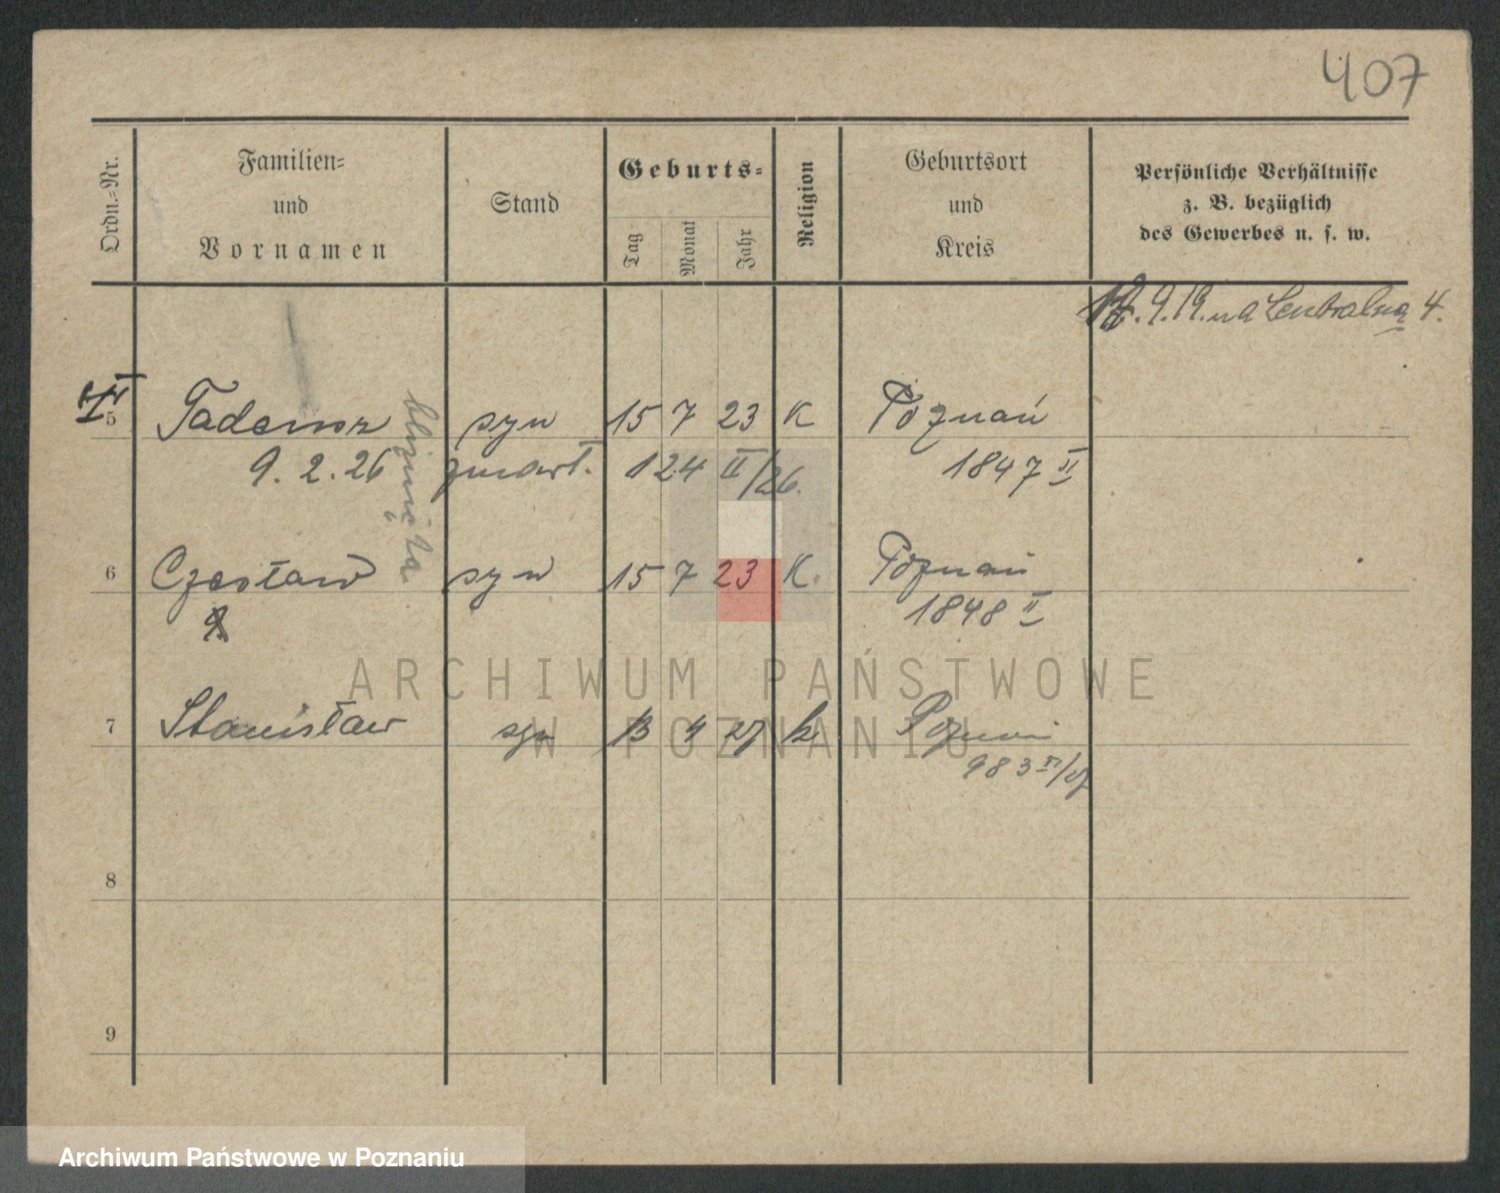 407
Ordn.=Nr.
Familien=
und
Vornamen
Stand
Geburts=
Tag
Monat
Jahr
Religion
Geburtsort
und
Kreis
Persönliche Verhältnisse
z. B. bezüglich
des Gewerbes u. s. w.
9.19. na Centralną 4.
5 Tadeusz syn 15 7 23 K Poznań
9.2.26 zmarł. 124 II/26. 1847 II
bliźnięta
6 Czesław syn 15 7 23 K. Poznań
1848 II
7 Stanisław syn 13 4 27 k. Poznań
983 II/27
8
9
ARCHIWUM PAŃSTWOWE
W POZNANIU
Archiwum Państwowe w Poznaniu